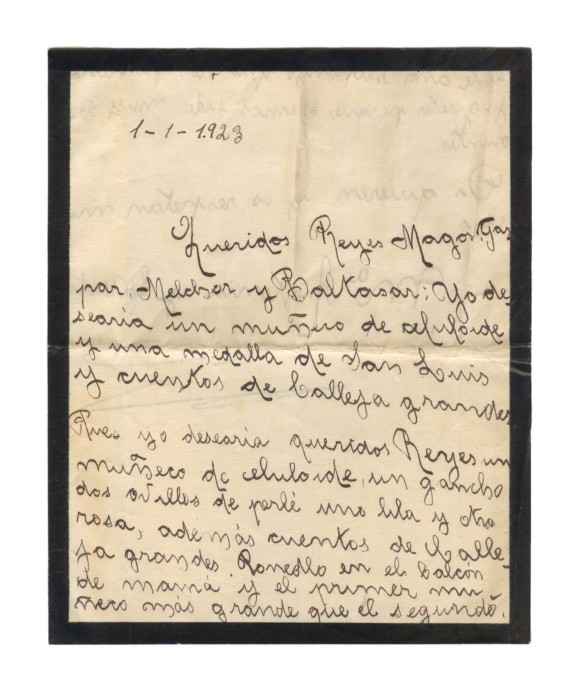 1-1-1.923
Queridos Reyes Magos: Gas
par, Melchor y Baltasar: Yo de-
searia un muñeco de celuloide
y una medalla de San Luis
y cuentos de Calleja grandes
Pues yo desearia queridos Reyes un
muñeco de celuloide, un gancho
dos ovillos de perlé uno lila y otro
rosa, además cuentos de Calle-
ja grandes. Ponedlo en el balcón
de mamá y el primer mu-
ñeco más grande que el segundo.